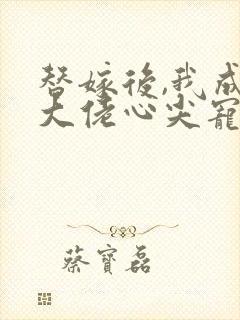 替嫁後,我成
大佬心尖寵
蔡寶磊